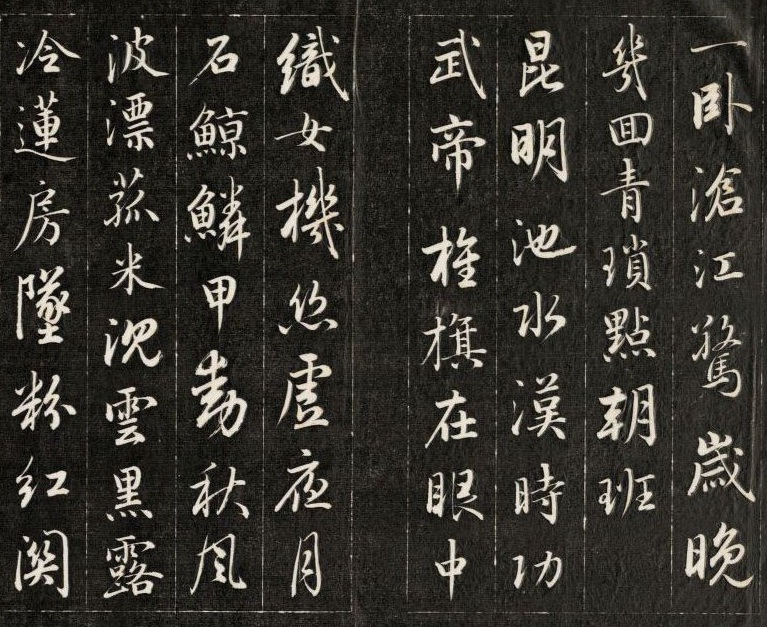 一卧滄江驚歲晚
幾回青瑣點朝班
昆明池水漢時功
武帝旌旗在眼中
織女機絲虛夜月
石鯨鱗甲動秋風
波漂菰米沈雲黑露
冷蓮房墜粉紅関